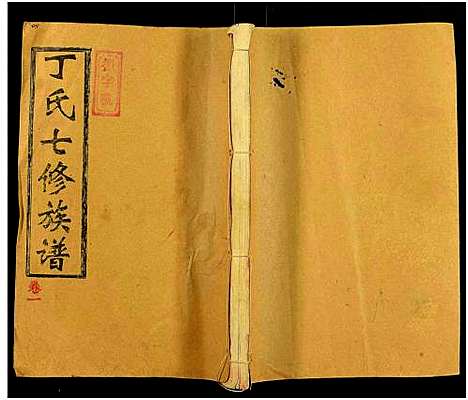 丁氏七修族谱
卷一